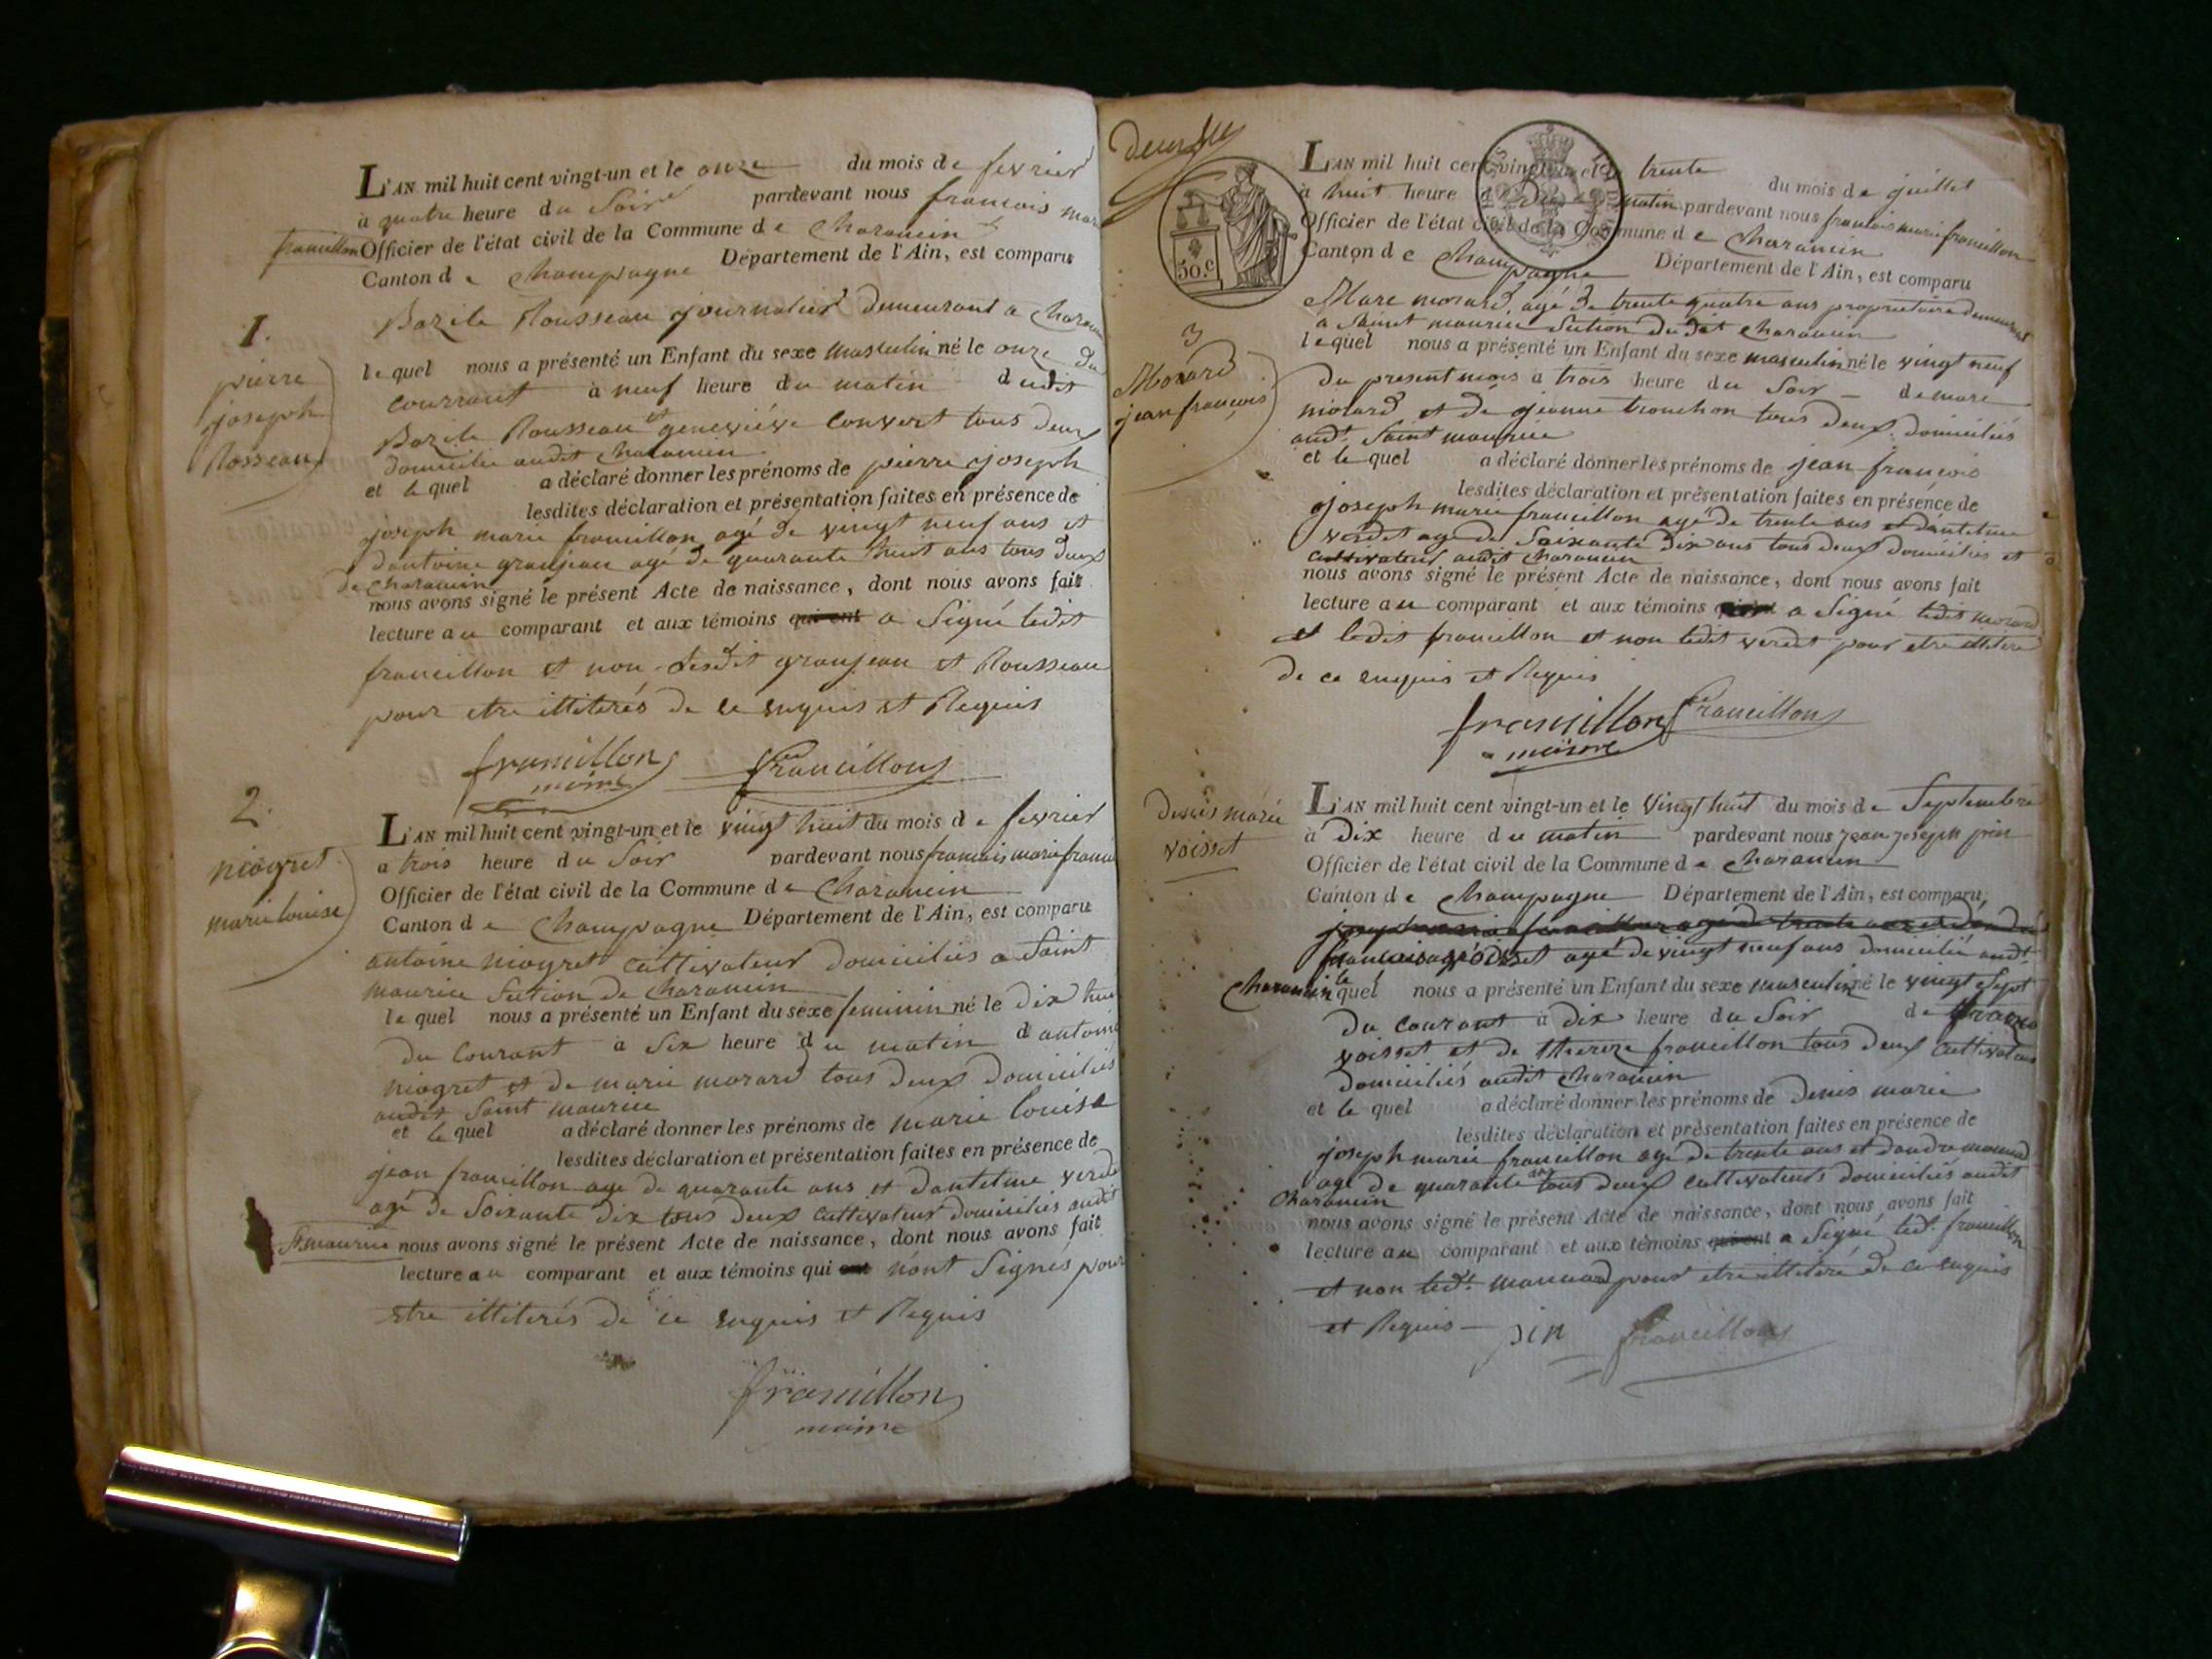 L'AN mil huit cent vingt-un et le onze du mois de fevrier
à quatre heure du Soir pardevant nous francois mar
francillon Officier de l'état civil de la Commune de Charancin
Canton de Champagne Département de l'Ain, est comparu
1.
pierre
joseph
Rosseau
Bazile Rousseau journalier demeurant a Charan
lequel nous a présenté un Enfant du sexe masculin né le onze du
courrant à neuf heure du matin dudit
Bazile Rousseau et geneviéve Convert tous deux
domicilie audit Charancin
et le quel a déclaré donner les prénoms de pierre joseph
lesdites déclaration et présentation faites en présence de
joseph marie francillon agé de vingt neuf ans et
dantoine granjean agé de quarante huit ans tous deux
de Charancin
nous avons signé le présent Acte de naissance, dont nous avons fait
lecture au comparant et aux témoins qui ont a Signé ledit
francillon et non desdit granjean et Rousseau
pour etre illiterés de ce enquis et Requis
francillon francillon
maire
2.
niogret
marie louise
L'AN mil huit cent vingt-un et le vingt huit du mois de fevrier
a trois heure du Soir pardevant nous francois marie franci
Officier de l'état civil de la Commune de Charancin
Canton de Champagne Département de l'Ain, est comparu
antoine niogret cultivateur domiciliés a Saint
maurice Section de Charancin
le quel nous a présenté un Enfant du sexe feminin né le dix hui
du Courant à Six heure du matin d antoine
niogret et de marie morard tous deux domiciliés
audit Saint maurice
et le quel a déclaré donner les prénoms de marie louise
lesdites déclaration et présentation faites en présence de
jean francillon age de quarante ans et dantelme verdet
agé de Soixante dix tous deux cultivateur domiciliés audit
St maurice nous avons signé le présent Acte de naissance, dont nous avons fait
lecture au comparant et aux témoins qui ont nont Signés pour
etre illiterés de ce enquis et Requis
francillon
maire
50.c
L'AN mil huit cent vingt-un et le trente du mois de juillet
à huit heure du matin pardevant nous francois marie francillon
Officier de l'état civil de la Commune de Charancin
Canton de Champagne Département de l'Ain, est comparu
3
Morard
jean françois
Marc morard agé de trente quatre ans proprietaire demeurant
a Saint maurice Section dudit Charancin
lequel nous a présenté un Enfant du sexe masculin né le vingt neuf
du present mois a trois heure du Soir de marc
molard et de jeanne tronchon tous deux domiciliés
audt Saint maurice
et le quel a déclaré donner les prénoms de jean françois
lesdites déclaration et présentation faites en présence de
joseph marie francillon agé de trente ans et dantelme
verdet age de Soixante dix ans tous deux domiciliés et
cultivateur audit Charancin
nous avons signé le présent Acte de naissance, dont nous avons fait
lecture au comparant et aux témoins a Signé ledit morard
et ledit francillon et non ledit verdet pour etre illiteré
de ce enquis et Requis
francillon francillon
maire
Denis marie
voisset
L'AN mil huit cent vingt-un et le Vingt huit du mois de Septembre
à Dix heure du matin pardevant nous jean joseph pin
Officier de l'état civil de la Commune de Charancin
Canton de Champagne Département de l'Ain, est comparu
joseph marie francillon agé de trente ans et dandré
francois voisset agé de vingt neuf ans domicilié audt
Charancin le quel nous a présenté un Enfant du sexe masculin né le vingt Sept
du courant à dix heure du Soir de
voisset et de therese francillon tous deux cultivateur
domiciliés audit Charancin
et le quel a déclaré donner les prénoms de Denis marie
lesdites déclaration et présentation faites en présence de
joseph marie francillon agé de trente ans et dandre
age de quarante ans tous deux cultivateurs domiciliés audit
Charancin
nous avons signé le présent Acte de naissance, dont nous avons fait
lecture au comparant et aux témoins qui ont a Signé ledt francillon
et non ledt pour etre illiteré de ce enquis
et Requis pin francillon